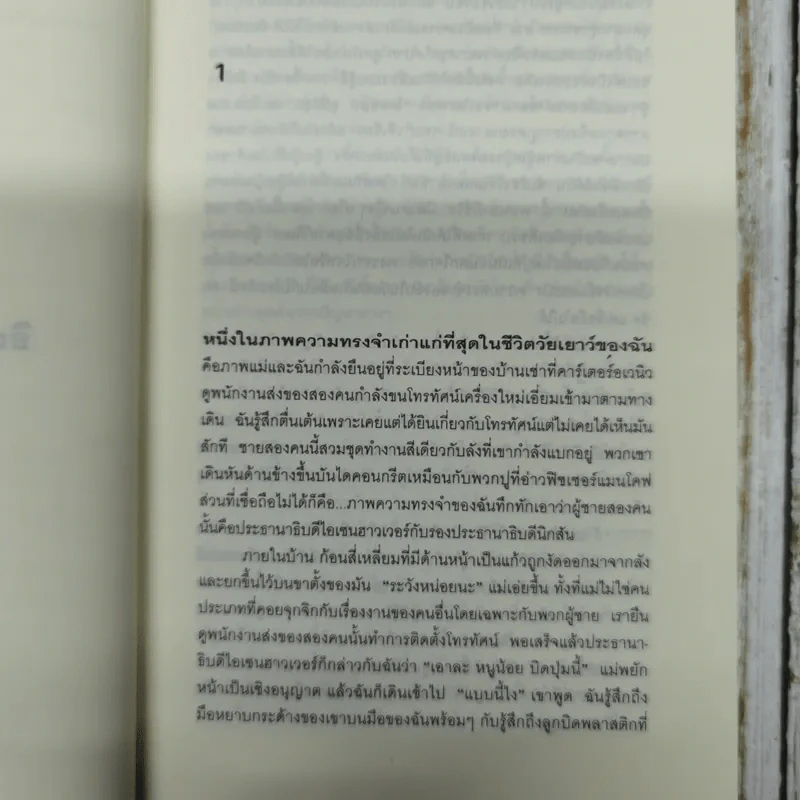 1
หนึ่งในภาพความทรงจำเก่าแก่ที่สุดในชีวิตวัยเยาว์ของฉัน
คือภาพแม่และฉันกำลังยืนอยู่ที่ระเบียงหน้าของบ้านเช่าที่คาร์เตอร์อเวนิว
ดูพนักงานส่งของสองคนกำลังขนโทรทัศน์เครื่องใหม่เอี่ยมเข้ามาตามทาง
เดิน ฉันรู้สึกตื่นเต้นเพราะเคยแต่ได้ยินเกี่ยวกับโทรทัศน์แต่ไม่เคยได้เห็นมัน
สักที ชายสองคนนี้สวมชุดทำงานสีเดียวกับลังที่เขากำลังแบกอยู่ พวกเขา
เดินหันด้านข้างขึ้นบันไดคอนกรีตเหมือนกับพวกปูที่อ่าวฟิชเชอร์แมนโคฟ
ส่วนที่เชื่อถือไม่ได้ก็คือ...ภาพความทรงจำของฉันทึกทักเอาว่าผู้ชายสองคน
นั้นคือประธานาธิบดีไอเซนฮาวเวอร์กับรองประธานาธิบดีนิกสัน
ภายในบ้าน ก้อนสี่เหลี่ยมที่มีด้านหน้าเป็นแก้วถูกงัดออกมาจากลัง
และยกขึ้นไว้บนขาตั้งของมัน “ระวังหน่อยนะ” แม่เอ่ยขึ้น ทั้งที่แม่ไม่ใช่คน
ประเภทที่คอยจุกจิกกับเรื่องงานของคนอื่นโดยเฉพาะกับพวกผู้ชาย เรายืน
ดูพนักงานส่งของสองคนนั้นทำการติดตั้งโทรทัศน์ พอเสร็จแล้วประธานา-
ธิบดีไอเซนฮาวเวอร์ก็กล่าวกับฉันว่า “เอาละ หนูน้อย บิดปุ่มนี้” แม่พยัก
หน้าเป็นเชิงอนุญาต แล้วฉันก็เดินเข้าไป “แบบนี้ไง” เขาพูด ฉันรู้สึกถึง
มือหยาบกระด้างของเขาบนมือของฉันพร้อมๆ กับรู้สึกถึงลูกบิดพลาสติกที่